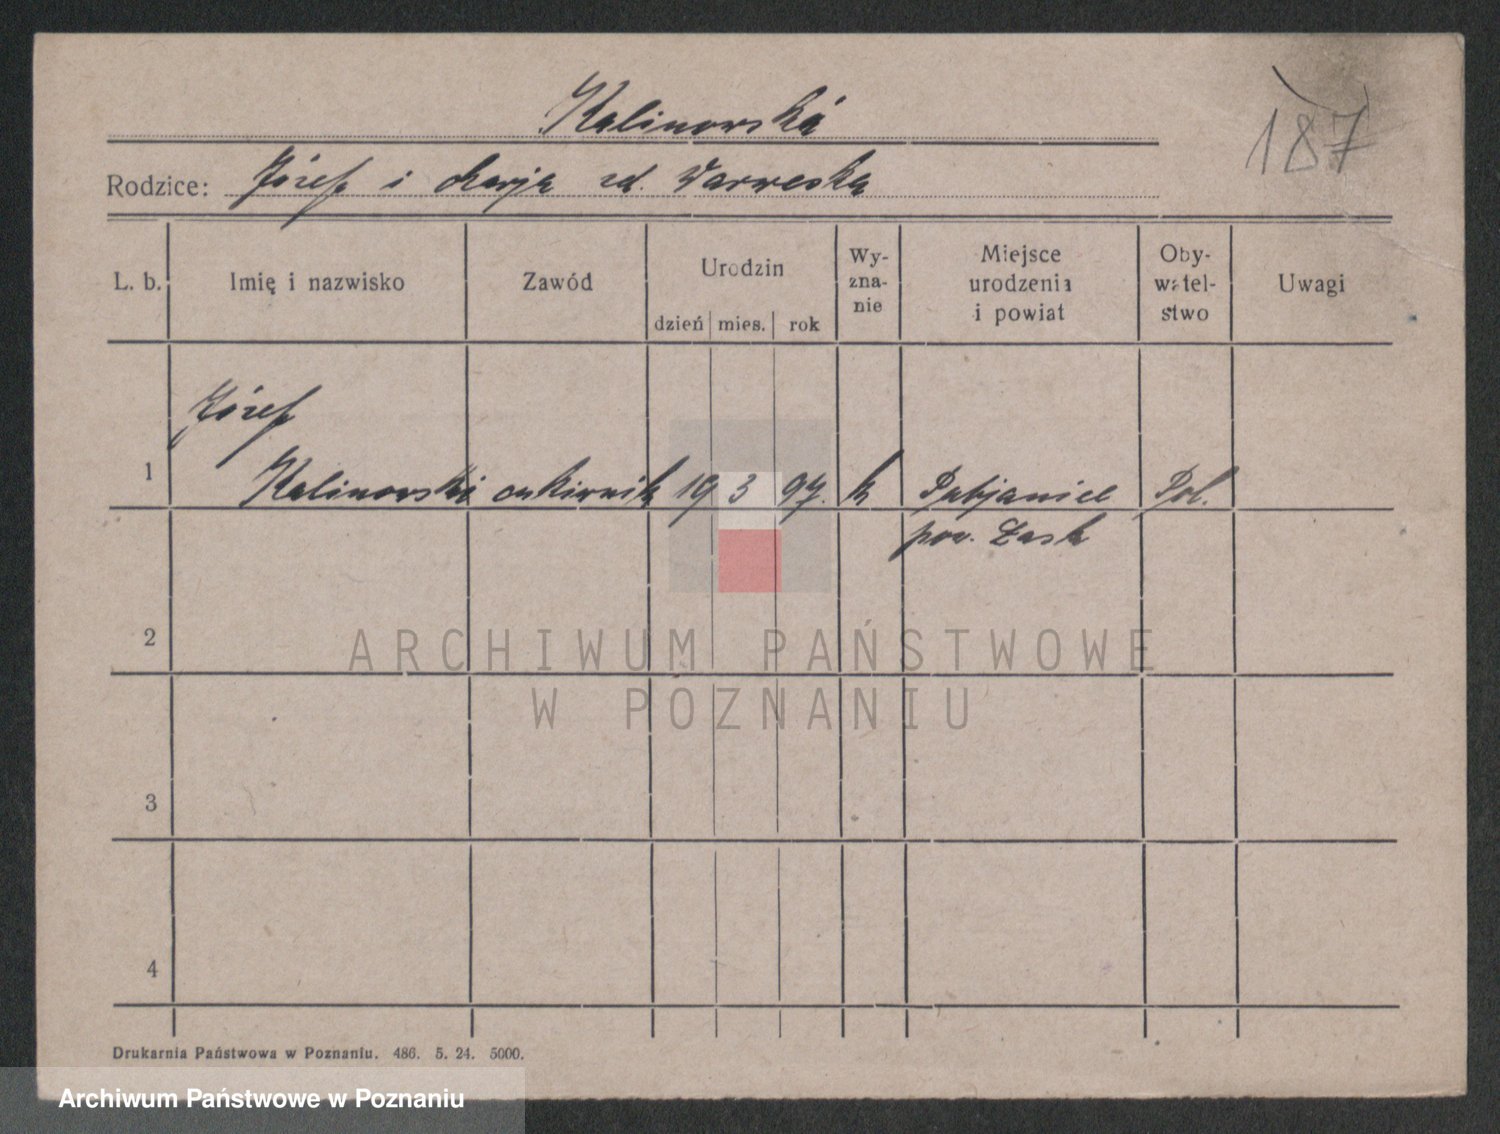 Kalinowski
187
Rodzice: Józef i Marja zd.
L. b. Imię i nazwisko Zawód Urodzin dzień mies. rok Wy-zna-nie Miejsce urodzenia i powiat Oby-watel-stwo Uwagi
Józef
1 Kalinowski cukiernik 19 3 97. k Pabjanice Pol.
pow. Łask
2
ARCHIWUM PAŃSTWOWE
W POZNANIU
3
4
Drukarnia Państwowa w Poznaniu. 486. 5. 24. 5000.
Archiwum Państwowe w Poznaniu